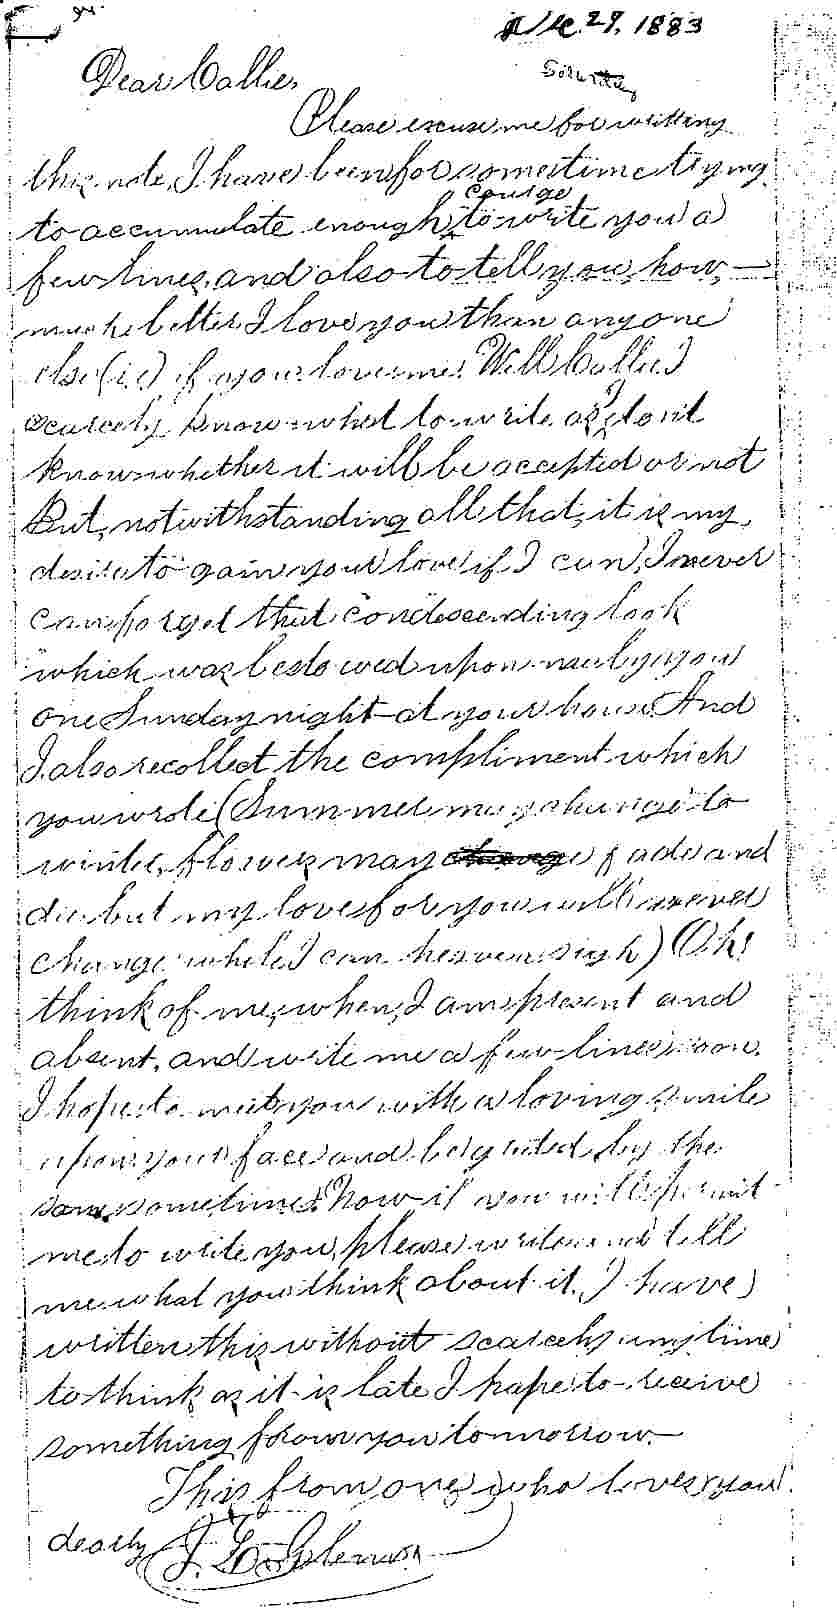 Dec. 29, 1883
Saturday
Dear Callie,
Please excuse me for writting
this note, I have been for sometime trying
courge
to accumulate enough to write you a
few lines, and also to tell you, how
much better I love you than anyone
else (i.e) if you love me. Well Callie I
scarcely know what to write as I don't
know whether it will be accepted or not
But, notwithstanding all that, it is my
desire to gain your love if I can, I never
can forget that condescending look
which was bestowed upon me by you
one Sunday night at your house. And
I also recollect the compliment which
you wrote (Summer may change to
winter, flowers may change fade and
die but my love for you will never
change while I can heave a sigh) Oh!
think of me, when, I am present and
absent, and write me a few lines soon.
I hope to meet you with a loving smile
upon your face and be greeted by the
same sometime. Now if you will permit
me to write you, please write and tell
me what you think about it. I have
written this without scarcely any time
to think as it is late I hope to receive
something from you tomorrow.
This from one who loves you
dearly J.